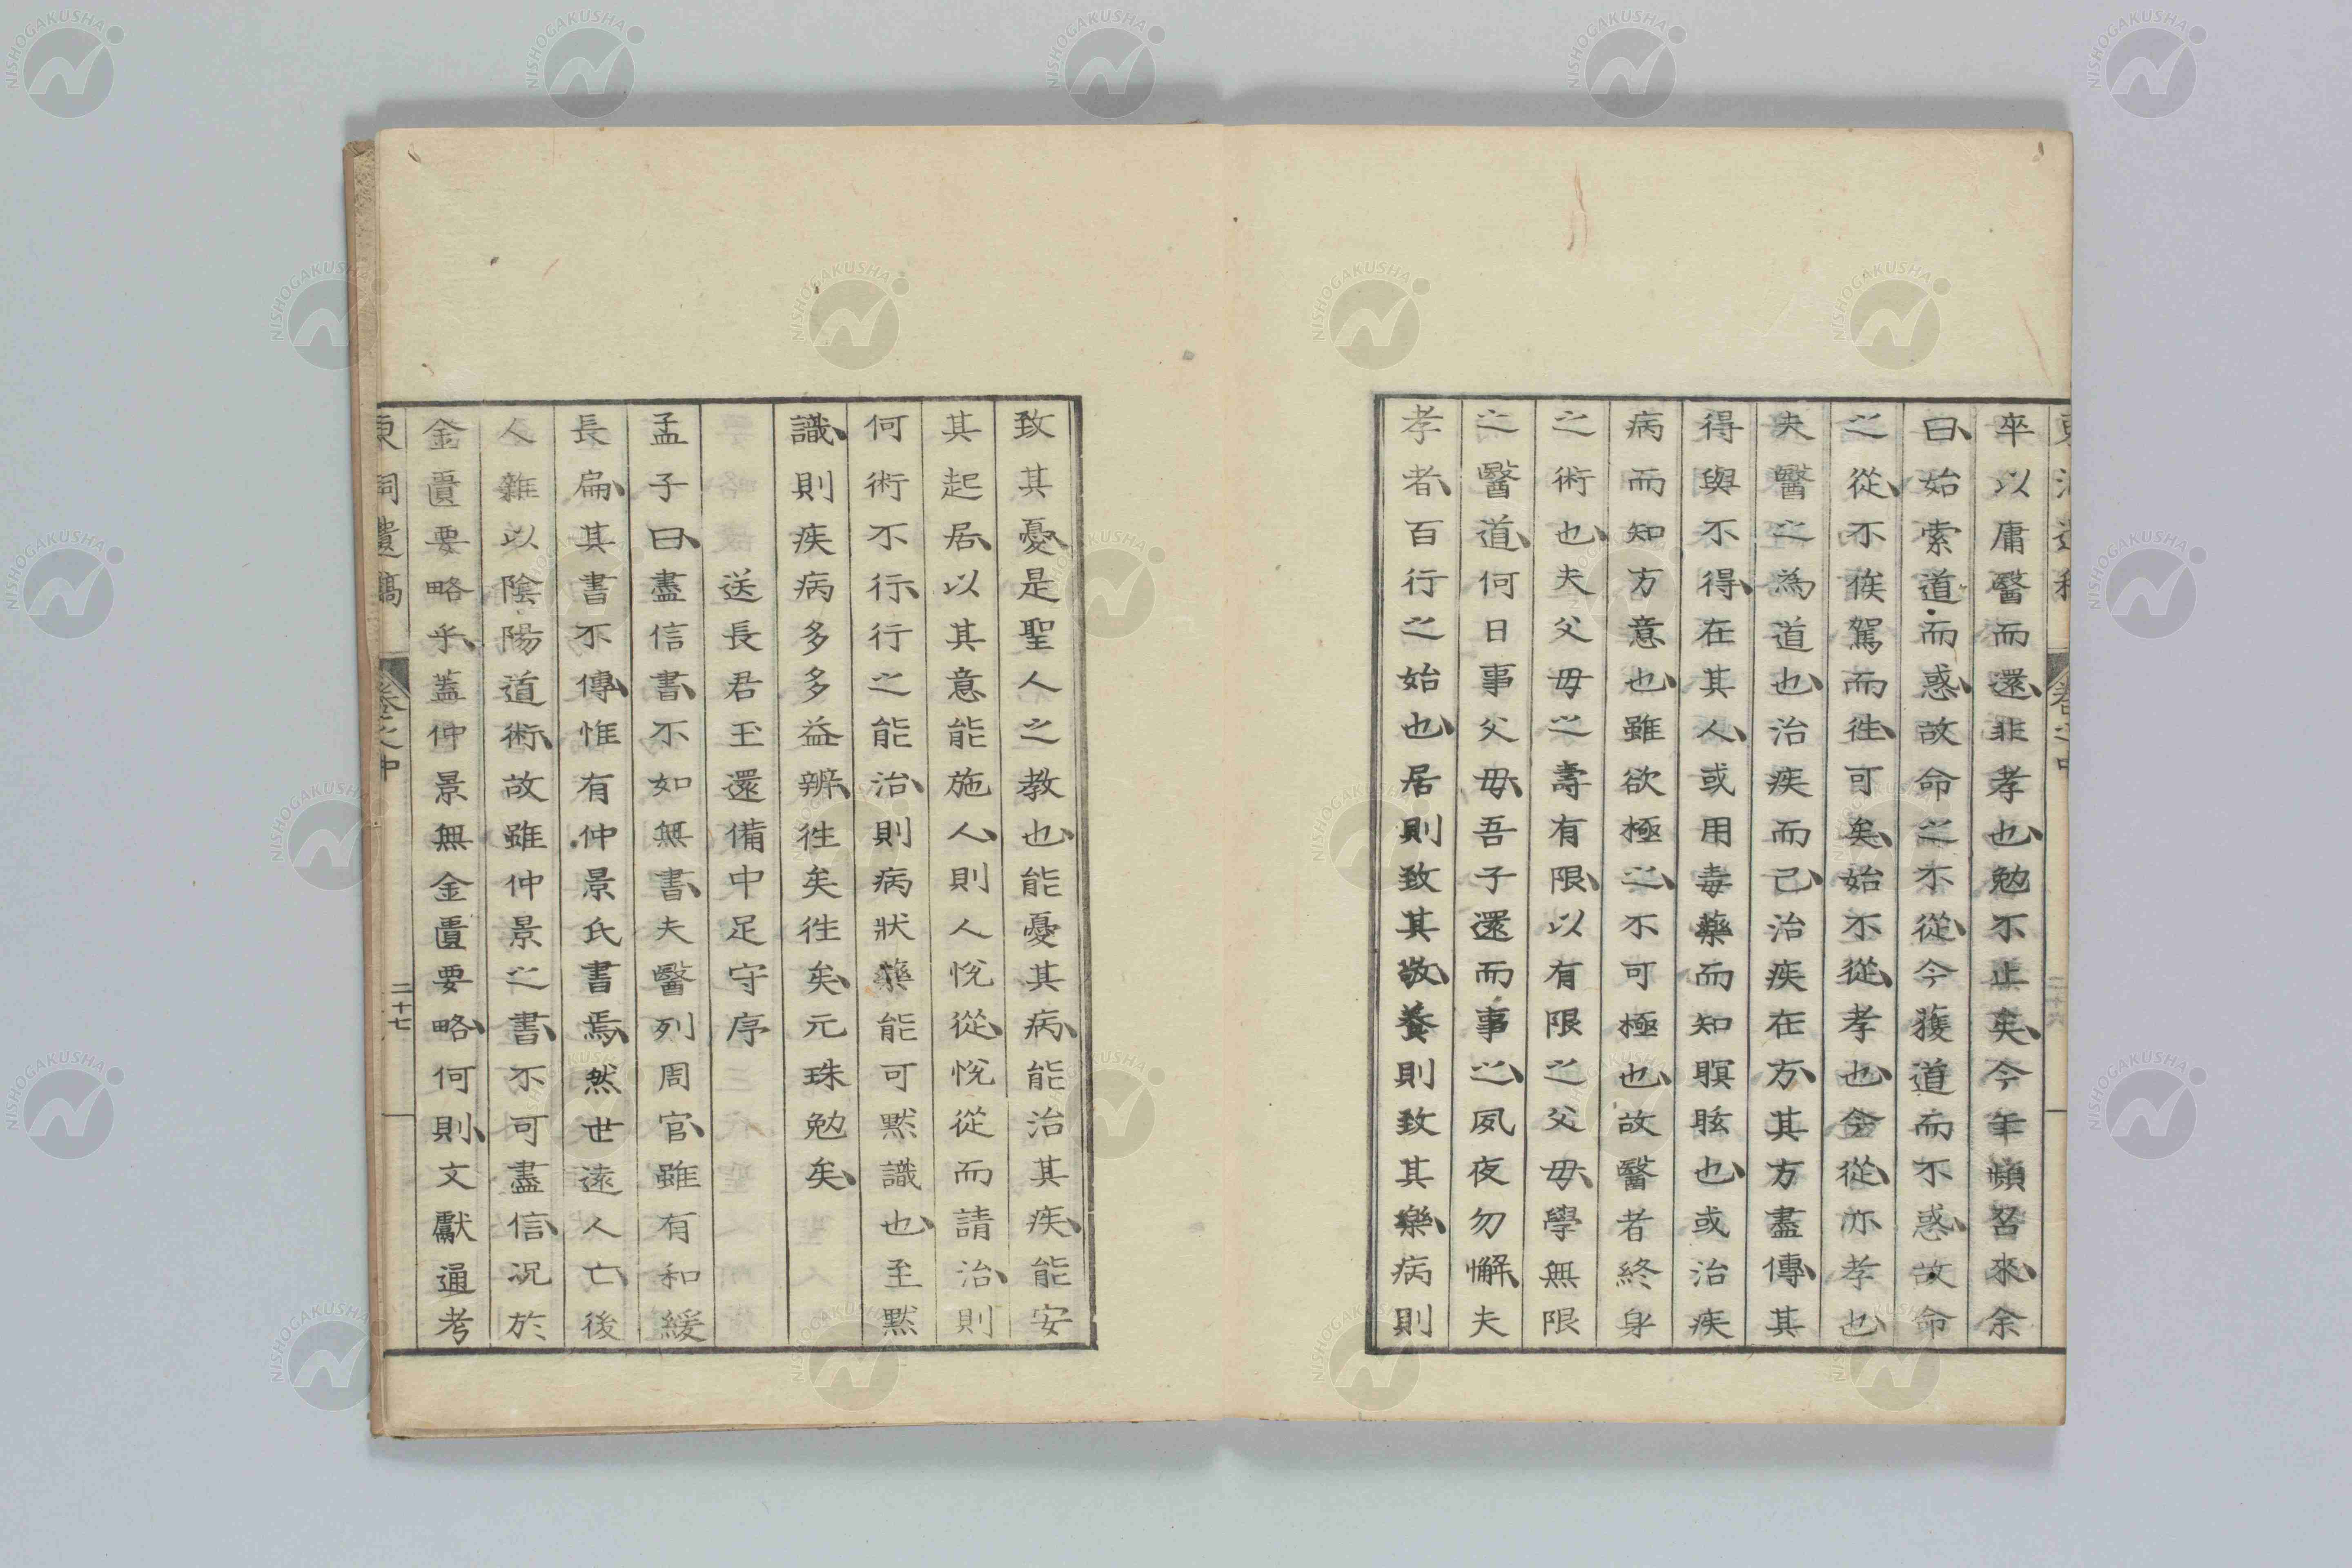 卒以庸醫而還、非孝也、勉不止矣、今年頻召來、余
曰、始索道而惑、故命之不從、今獲道而不惑、故命
之從、不俟駕而徃、可矣、始不從、孝也、今從、亦孝也、
夫醫之為道也、治疾而已、治疾在方、其方盡傳、其
得與不得、在其人、或用毒藥而知瞑眩也、或治疾
病而知方意也、雖欲極之、不可極也、故醫者終身
之術也、夫父母之壽有限、以有限之父母、學無限
之醫道、何日事父母、吾子還而事之、夙夜勿懈、夫
孝者、百行之始也、居則致其敬、養則致其樂、病則
致其憂、是聖人之教也、能憂其病、能治其疾、能安
其起居、以其意能施人、則人悅從、悅從而請治、則
何術不行、行之能治、則病狀藥能可默識也、至默
識、則疾病多多益辨、徃矣徃矣、元珠勉矣、
送長君玉還備中足守序
孟子曰、盡信書、不如無書、夫醫列周官、雖有和緩
長扁、其書不傳、惟有仲景氏書焉、然世遠人亡、後
人雜以陰陽道術、故雖仲景之書、不可盡信、況於
金匱要略乎、蓋仲景無金匱要略、何則、文獻通考
東洞遺稿 卷之中 二十七
NISHOGAKUSHA